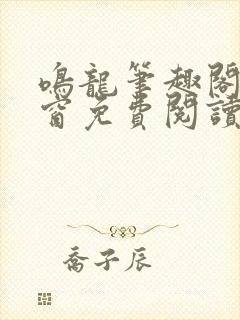 鳴龍筆趣閣
窗免費閱讀
喬子辰